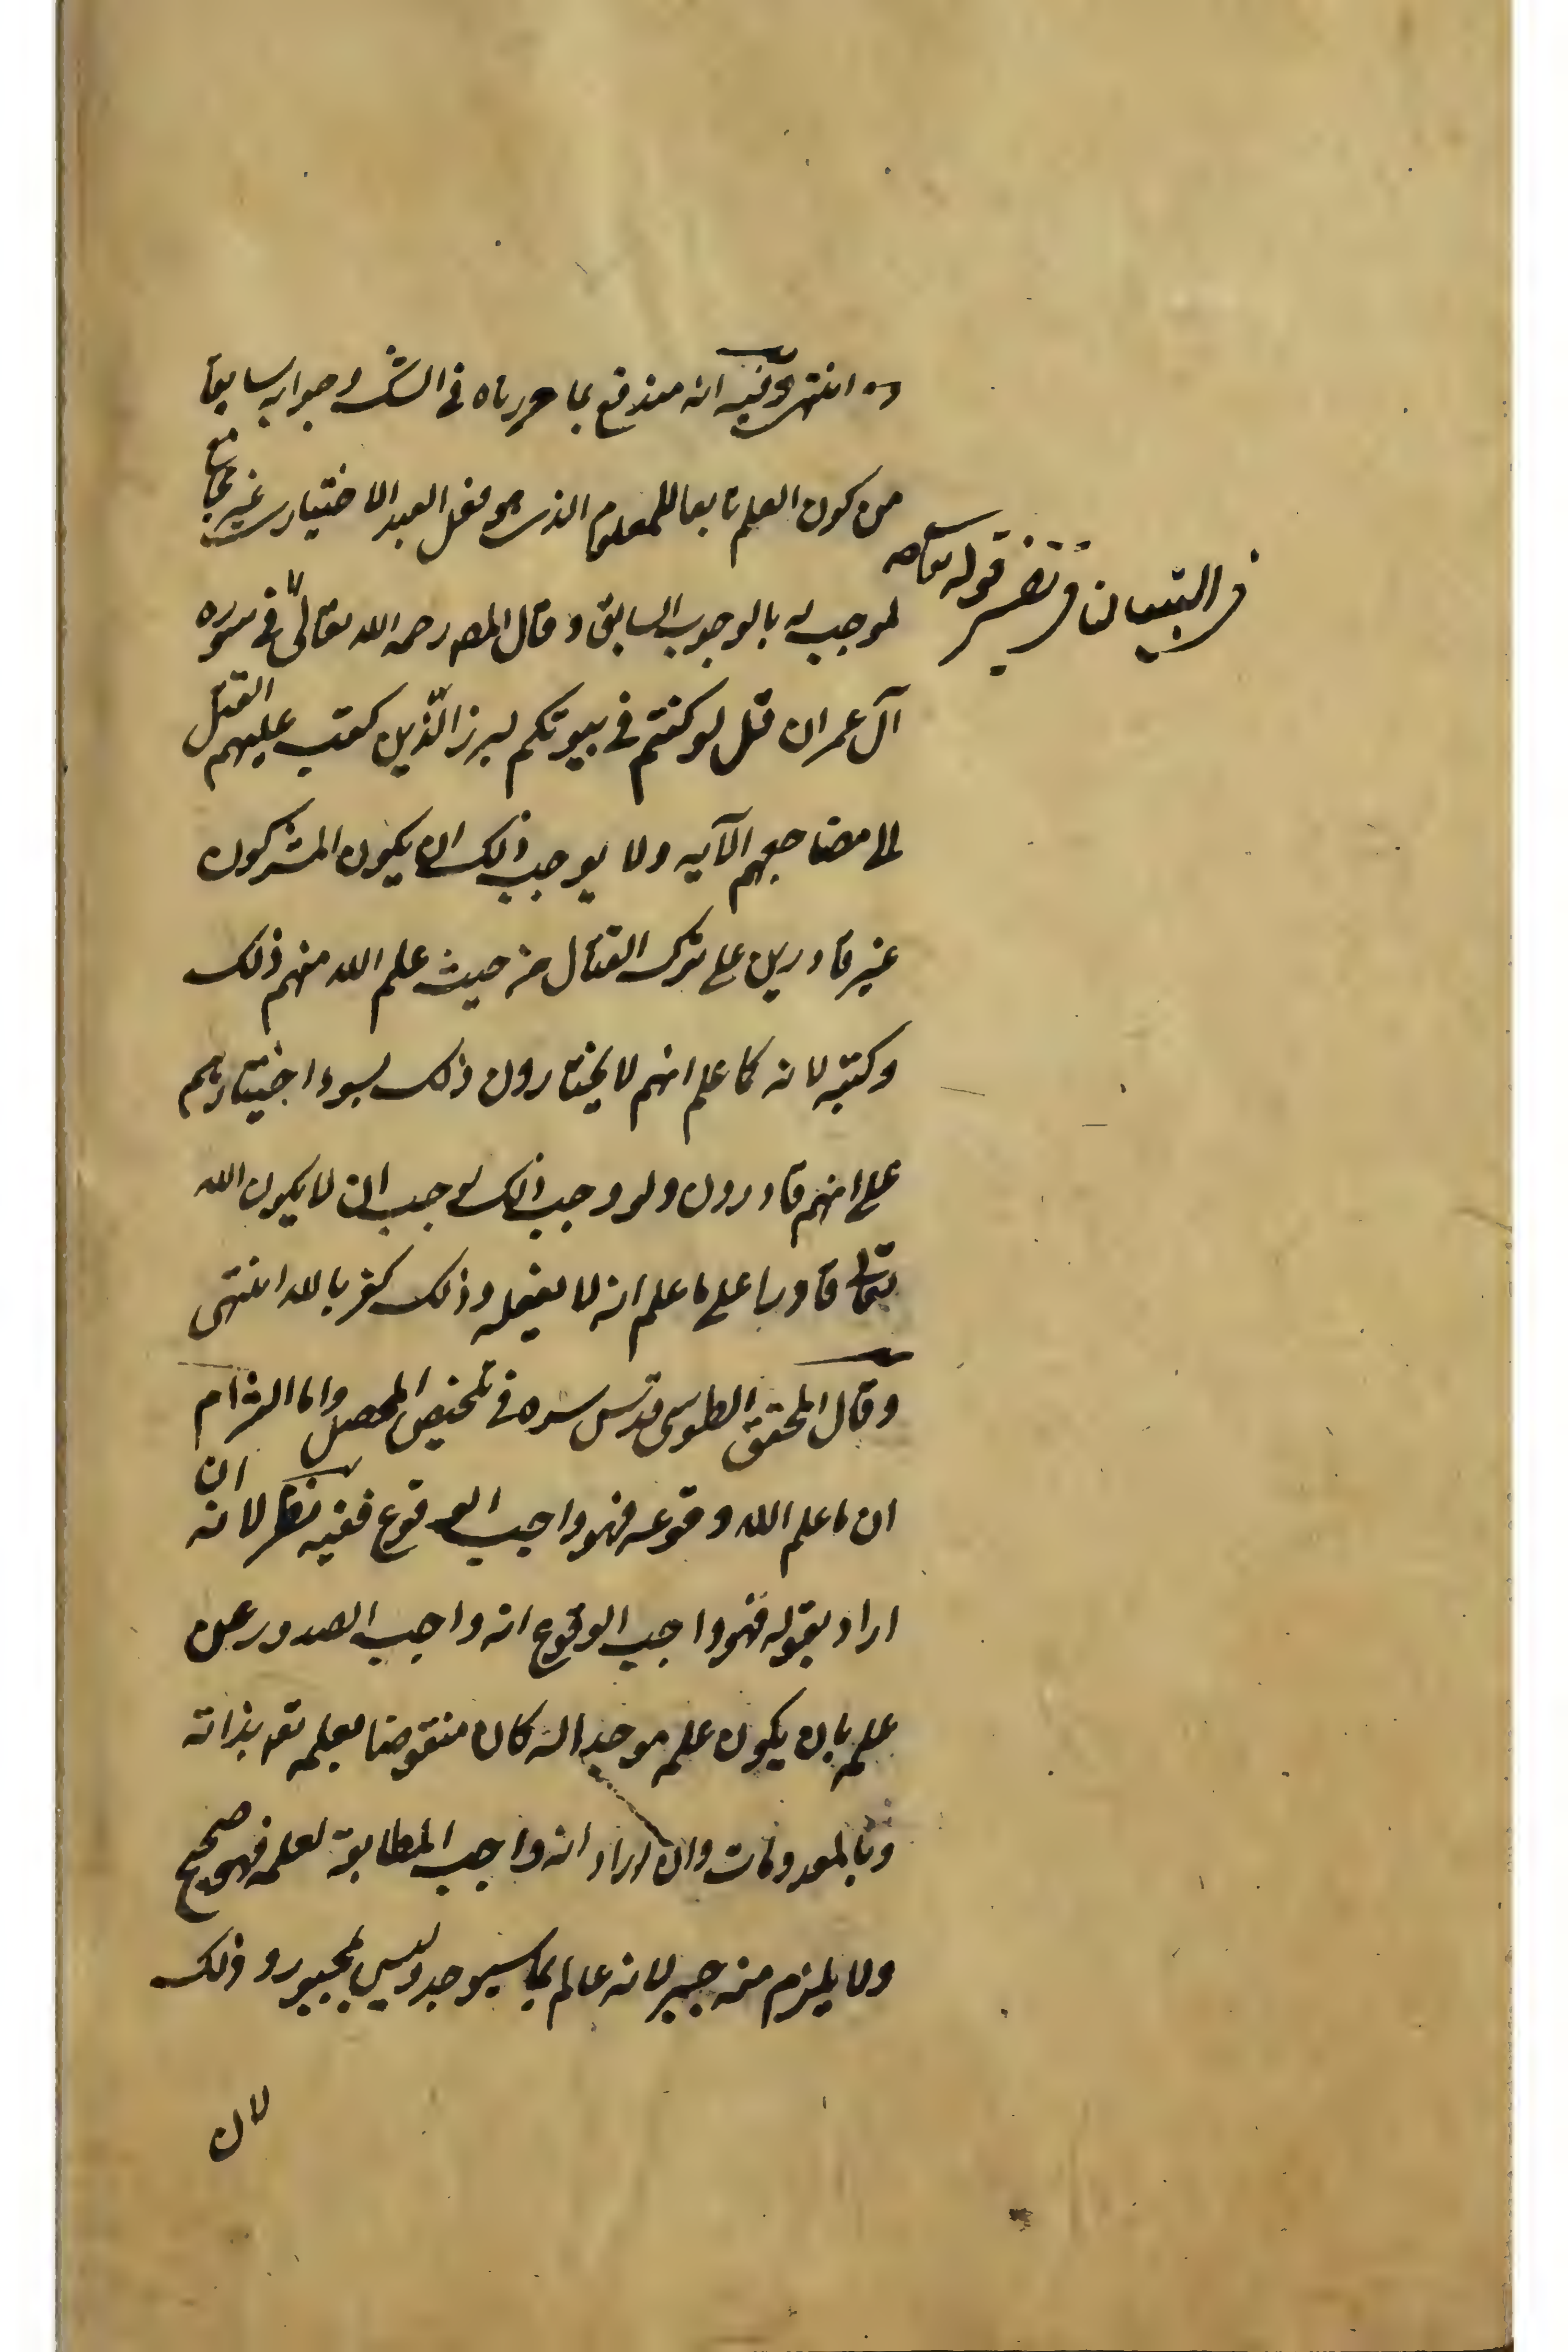 ده انتهى وفيه انه مندفع بما حررناه فى الشك وجوابه سابقا
من كون العلم تابعا للمعلوم الذى هو فعل العبد الاختيارى غير
لموجب له بالوجوب السابق وقال المص رحمه الله تعالى فى سوره
فى التبيان فى تفسير قوله تعالى
آل عمران قل لو كنتم فى بيوتكم لبرز الّذين كتب عليهم القتل
الى مضاجعهم الآيه ولا يوجب ذلك ان يكون المشركون
غير قادرين على ترك القتال من حيث علم الله منهم ذلك
وكتبه لانه كما علم انهم لا يختارون ذلك بسوء اختيارهم
علم انهم قادرون ولو وجب ذلك لوجب ان لا يكون الله
تعالى قادرا على ما علم انه لا يفعله وذلك كفر بالله انتهى
وقال المحقق الطوسى قدس سره فى تلخيص المحصل واما الزام
ان ما علم الله وقوعه فهو واجب الوقوع ففيه نظر لانه ان
اراد بقوله فهو واجب الوقوع انه واجب الصدور عن
علم بان يكون علم موجدا له كان منقوضا بعلمه تعه بذاته
وبالمعدومات وان اراد انه واجب المطابقة لعلمه فهو صحيح
ولا يلزم منه جبر لانه عالم بما سيوجد وليس بمجبور وذلك
لان